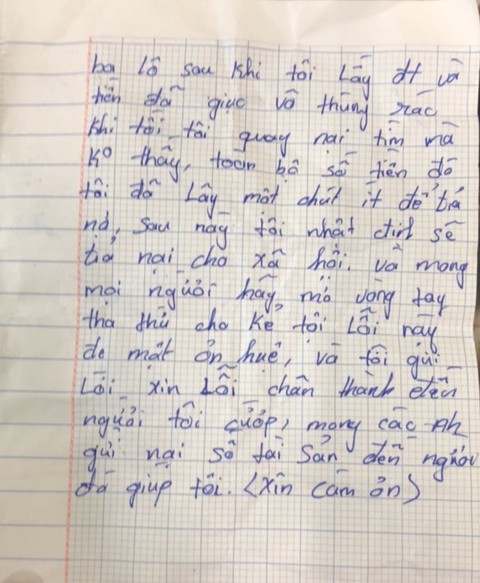 ba lô sau khi tôi Lấy đt và
tiền đã giục vô thùng rác
khi tối tôi quay nai tìm mà
ko thấy, toàn bộ số tiền đó
tôi đã Lấy một chút ít để tiả
nợ, sau này tôi nhất định sẽ
tiả nai cho xã hội. và mong
mọi người hãy mở vòng tay
tha thứ cho kẻ tội Lỗi này
đc một ơn huệ, và tôi gửi
Lời xin Lỗi chân thành đến
người tôi cướp, mong các Ah
gửi nai số tài sản đến người
đã giúp tôi. (xin cảm ơn)